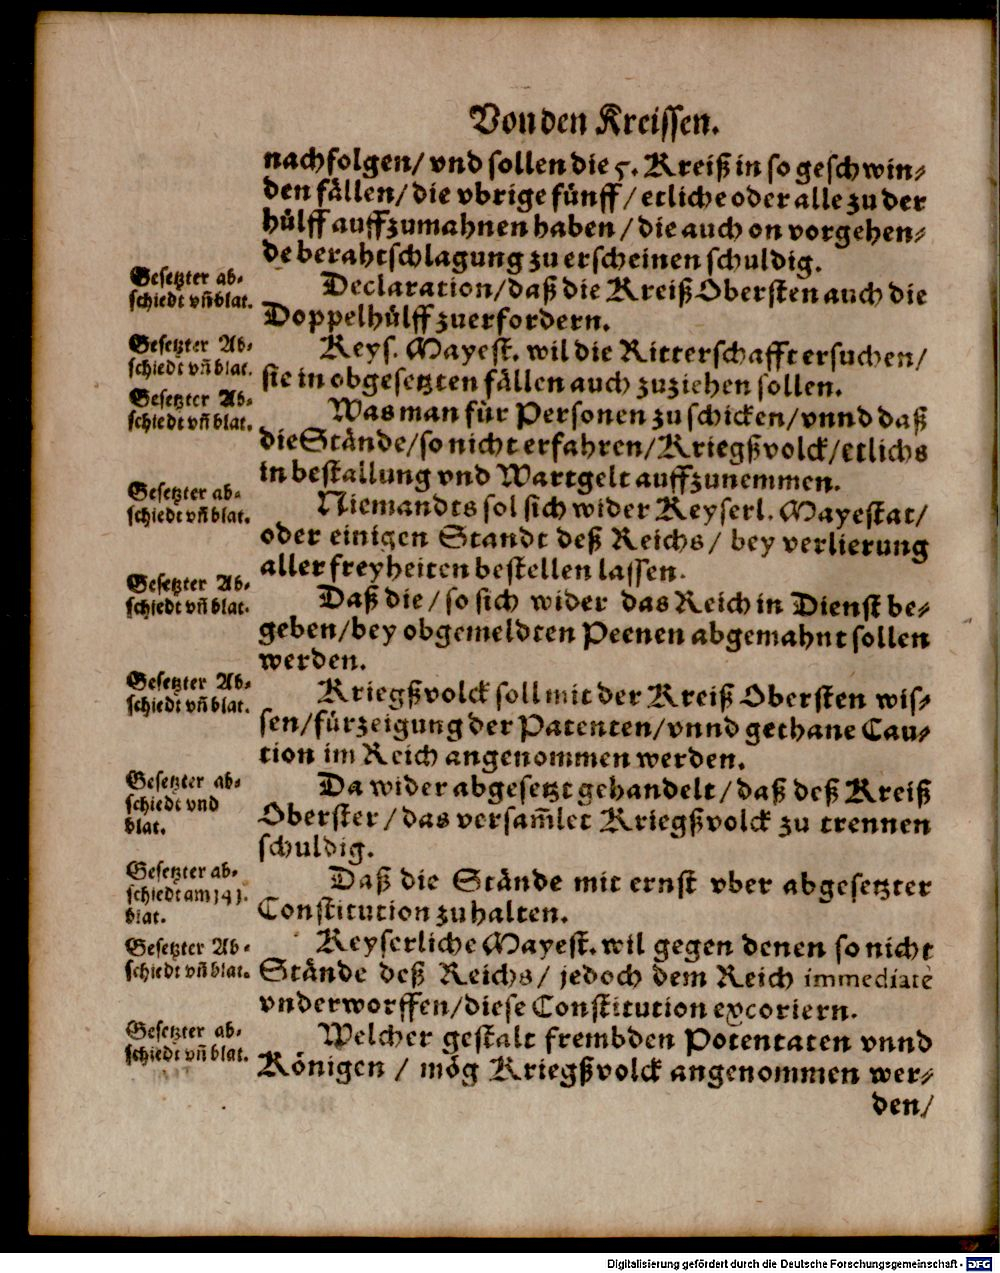 Von den Kreissen.
nachfolgen/ vnd sollen die 5. Kreiß in so geschwin-
den fällen/ die vbrige fünff/ etliche oder alle zu der
hülff auffzumahnen haben/ die auch on vorgehen-
de berahtschlagung zu erscheinen schuldig.
Gesetzter ab-
schiedt vn̄ blat.
Declaration/ daß die Kreiß Obersten auch die
Doppelhülff zuerfordern.
Gesetzter Ab-
schiedt vn̄ blat.
Keys. Mayest. wil die Ritterschafft ersuchen/
sie in obgesetzten fällen auch zuziehen sollen.
Gesetzter Ab-
schiedt vn̄ blat.
Was man für Personen zu schicken/ vnnd daß
die Stände/ so nicht erfahren/ Kriegßvolck/ etlichs
in bestallung vnd Wartgelt auffzunemmen.
Gesetzter ab-
schiedt vn̄ blat.
Niemandts sol sich wider Keyserl. Mayestat/
oder einigen Standt deß Reichs/ bey verlierung
aller freyheiten bestellen lassen.
Gesetzter Ab-
schiedt vn̄ blat.
Daß die/ so sich wider das Reich in Dienst be-
geben/ bey obgemeldten Peenen abgemahnt sollen
werden.
Gesetzter Ab-
schiedt vn̄ blat.
Kriegßvolck soll mit der Kreiß Obersten wis-
sen/ fürzeigung der Patenten/ vnnd gethane Cau-
tion im Reich angenommen werden.
Gesetzter ab-
schiedt vnd
blat.
Da wider abgesetzt gehandelt/ daß deß Kreiß
Oberster/ das versam̄let Kriegßvolck zu trennen
schuldig.
Gesetzter ab-
schiedt am 141.
blat.
Daß die Stände mit ernst vber abgesetzter
Constitution zu halten.
Gesetzter Ab-
schiedt vn̄ blat.
Keyserliche Mayest. wil gegen denen so nicht
Stände deß Reichs/ jedoch dem Reich immediatè
vnderworffen/ diese Constitution excoriern.
Gesetzter ab-
schiedt vn̄ blat.
Welcher gestalt frembden Potentaten vnnd
Königen / mög Kriegßvolck angenommen wer-
den/
Digitalisierung gefördert durch die Deutsche Forschungsgemeinschaft - DFG